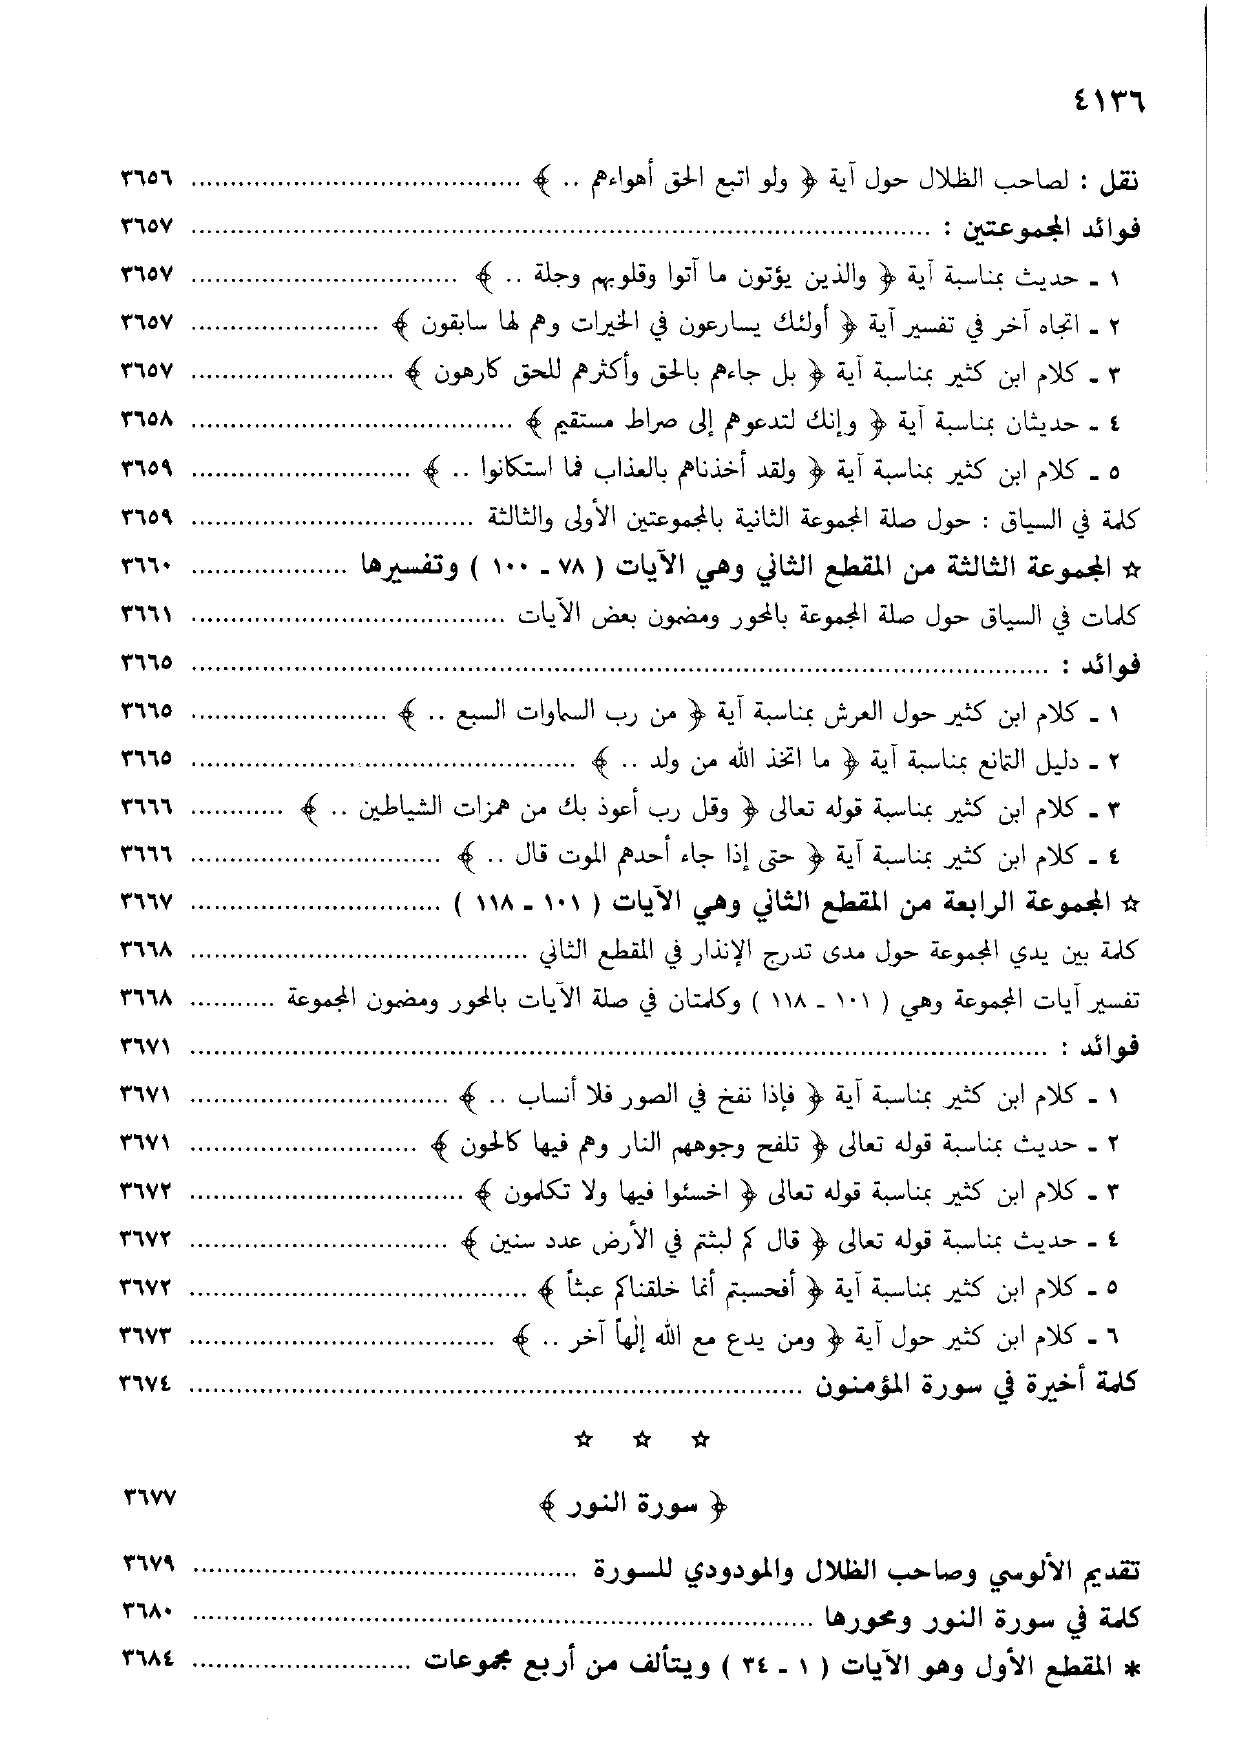 ٤١٣٦
نقل : لصاحب الظلال حول آية ﴿ ولو اتبع الحق أهواءهم .. ﴾ ........................................ ٣٦٥٦
فوائد المجموعتين : ........................................ ٣٦٥٧
١ ـ حديث بمناسبة آية ﴿ والذين يؤتون ما آتوا وقلوبهم وجلة .. ﴾ ........................................ ٣٦٥٧
٢ ـ اتجاه آخر في تفسير آية ﴿ أولئك يسارعون في الخيرات وهم لها سابقون ﴾ ........................ ٣٦٥٧
٣ ـ كلام ابن كثير بمناسبة آية ﴿ بل جاءهم بالحق وأكثرهم للحق كارهون ﴾ ........................ ٣٦٥٧
٤ ـ حديثان بمناسبة آية ﴿ وإنك لتدعوهم إلى صراط مستقيم ﴾ ........................................ ٣٦٥٨
٥ ـ كلام ابن كثير بمناسبة آية ﴿ ولقد أخذناهم بالعذاب فما استكانوا .. ﴾ ........................ ٣٦٥٩
كلمة في السياق : حول صلة المجموعة الثانية بالمجموعتين الأولى والثالثة ........................ ٣٦٥٩
☆ المجموعة الثالثة من المقطع الثاني وهي الآيات ( ٧٨ ـ ١٠٠ ) وتفسيرها .................... ٣٦٦٠
كلمات في السياق حول صلة المجموعة بالمحور ومضمون بعض الآيات ........................ ٣٦٦١
فوائد : ........................................ ٣٦٦٥
١ ـ كلام ابن كثير حول العرش بمناسبة آية ﴿ من رب السماوات السبع .. ﴾ ........................ ٣٦٦٥
٢ ـ دليل التمانع بمناسبة آية ﴿ ما اتخذ الله من ولد .. ﴾ ........................................ ٣٦٦٥
٣ ـ كلام ابن كثير بمناسبة قوله تعالى ﴿ وقل رب أعوذ بك من همزات الشياطين .. ﴾ ............ ٣٦٦٦
٤ ـ كلام ابن كثير بمناسبة آية ﴿ حتى إذا جاء أحدهم الموت قال .. ﴾ ........................ ٣٦٦٦
☆ المجموعة الرابعة من المقطع الثاني وهي الآيات ( ١٠١ ـ ١١٨ ) ........................ ٣٦٦٧
كلمة بين يدي المجموعة حول مدى تدرج الإنذار في المقطع الثاني ........................ ٣٦٦٨
تفسير آيات المجموعة وهي ( ١٠١ ـ ١١٨ ) وكلمتان في صلة الآيات بالمحور ومضمون المجموعة ........... ٣٦٦٨
فوائد : ........................................ ٣٦٧١
١ ـ كلام ابن كثير بمناسبة آية ﴿ فإذا نفخ في الصور فلا أنساب .. ﴾ ........................ ٣٦٧١
٢ ـ حديث بمناسبة قوله تعالى ﴿ تلفح وجوههم النار وهم فيها كالحون ﴾ ........................ ٣٦٧١
٣ ـ كلام ابن كثير بمناسبة قوله تعالى ﴿ اخسئوا فيها ولا تكلمون ﴾ ........................ ٣٦٧٢
٤ ـ حديث بمناسبة قوله تعالى ﴿ قال كم لبثتم في الأرض عدد سنين ﴾ ........................ ٣٦٧٢
٥ ـ كلام ابن كثير بمناسبة آية ﴿ أفحسبتم أنما خلقناكم عبثاً ﴾ ........................ ٣٦٧٢
٦ ـ كلام ابن كثير حول آية ﴿ ومن يدع مع الله إلهاً آخر .. ﴾ ........................ ٣٦٧٣
كلمة أخيرة في سورة المؤمنون ........................................ ٣٦٧٤
☆ ☆ ☆
﴿ سورة النور ﴾ ٣٦٧٧
تقديم الألوسي وصاحب الظلال والمودودي للسورة ........................................ ٣٦٧٩
كلمة في سورة النور ومحورها ........................................ ٣٦٨٠
* المقطع الأول وهو الآيات ( ١ ـ ٣٤ ) ويتألف من أربع مجموعات ........................ ٣٦٨٤